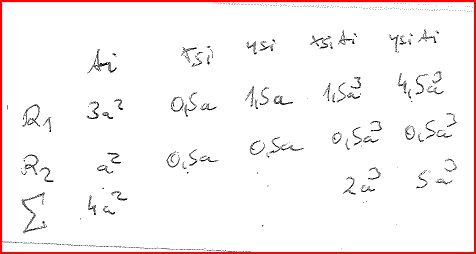 Ai xsi ysi xsiAi ysiAi
R1 3a² 0,5a 1,5a 1,5a³ 4,5a³
R2 a² 0,5a 0,5a 0,5a³ 0,5a³
Σ 4a² 2a³ 5a³